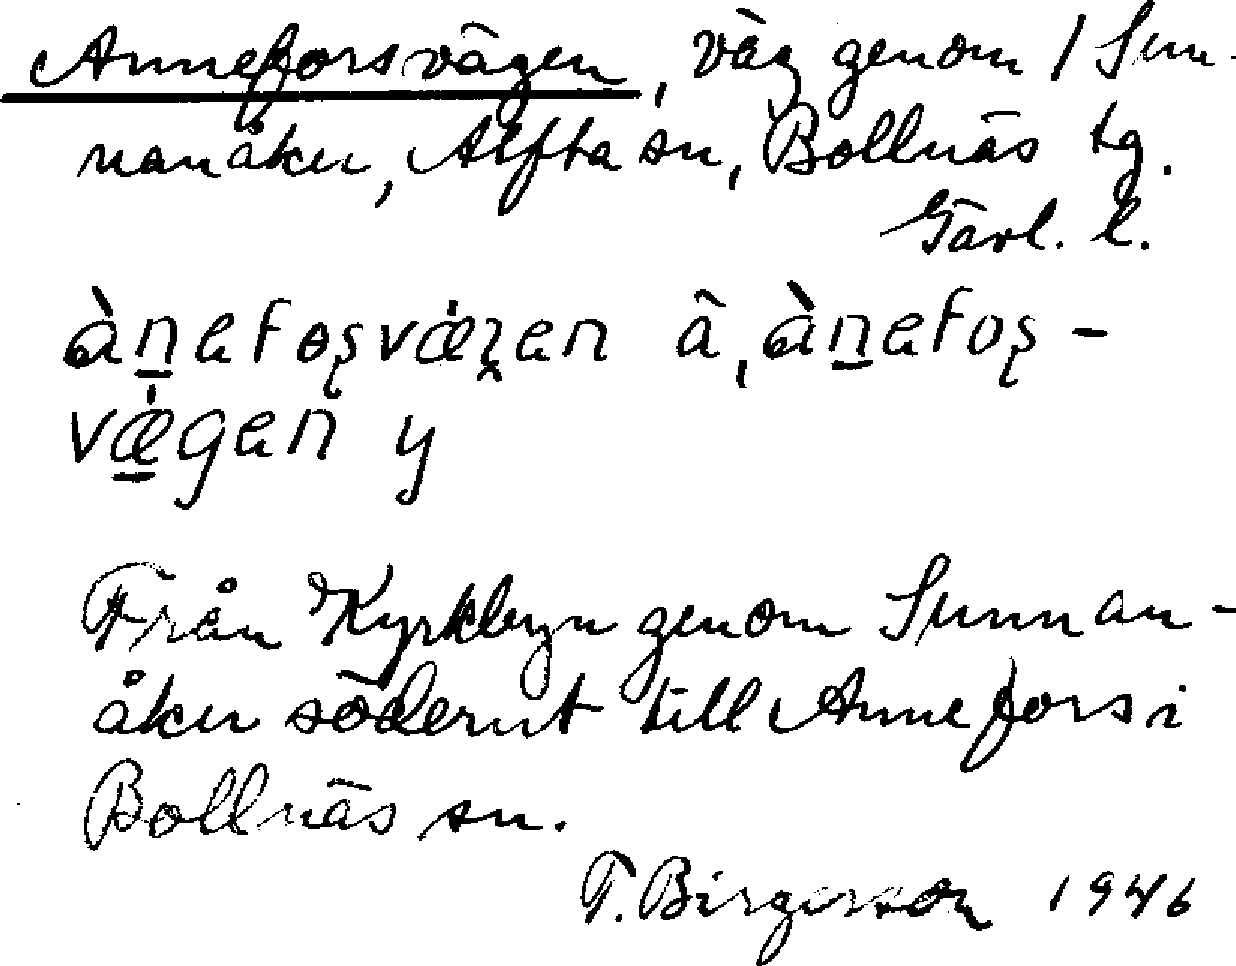 Anneforsvägen, väg genom / Sun-
nanåker, Alfta sn, Bollnäs tg.
Gävl. l.
ànefosvǽgen ä,ànefos-
vǽgen y
Från Kyrkbyn genom Sunnan-
åker söderut till Annefors i
Bollnäs sn.
T. Birgersson 1946